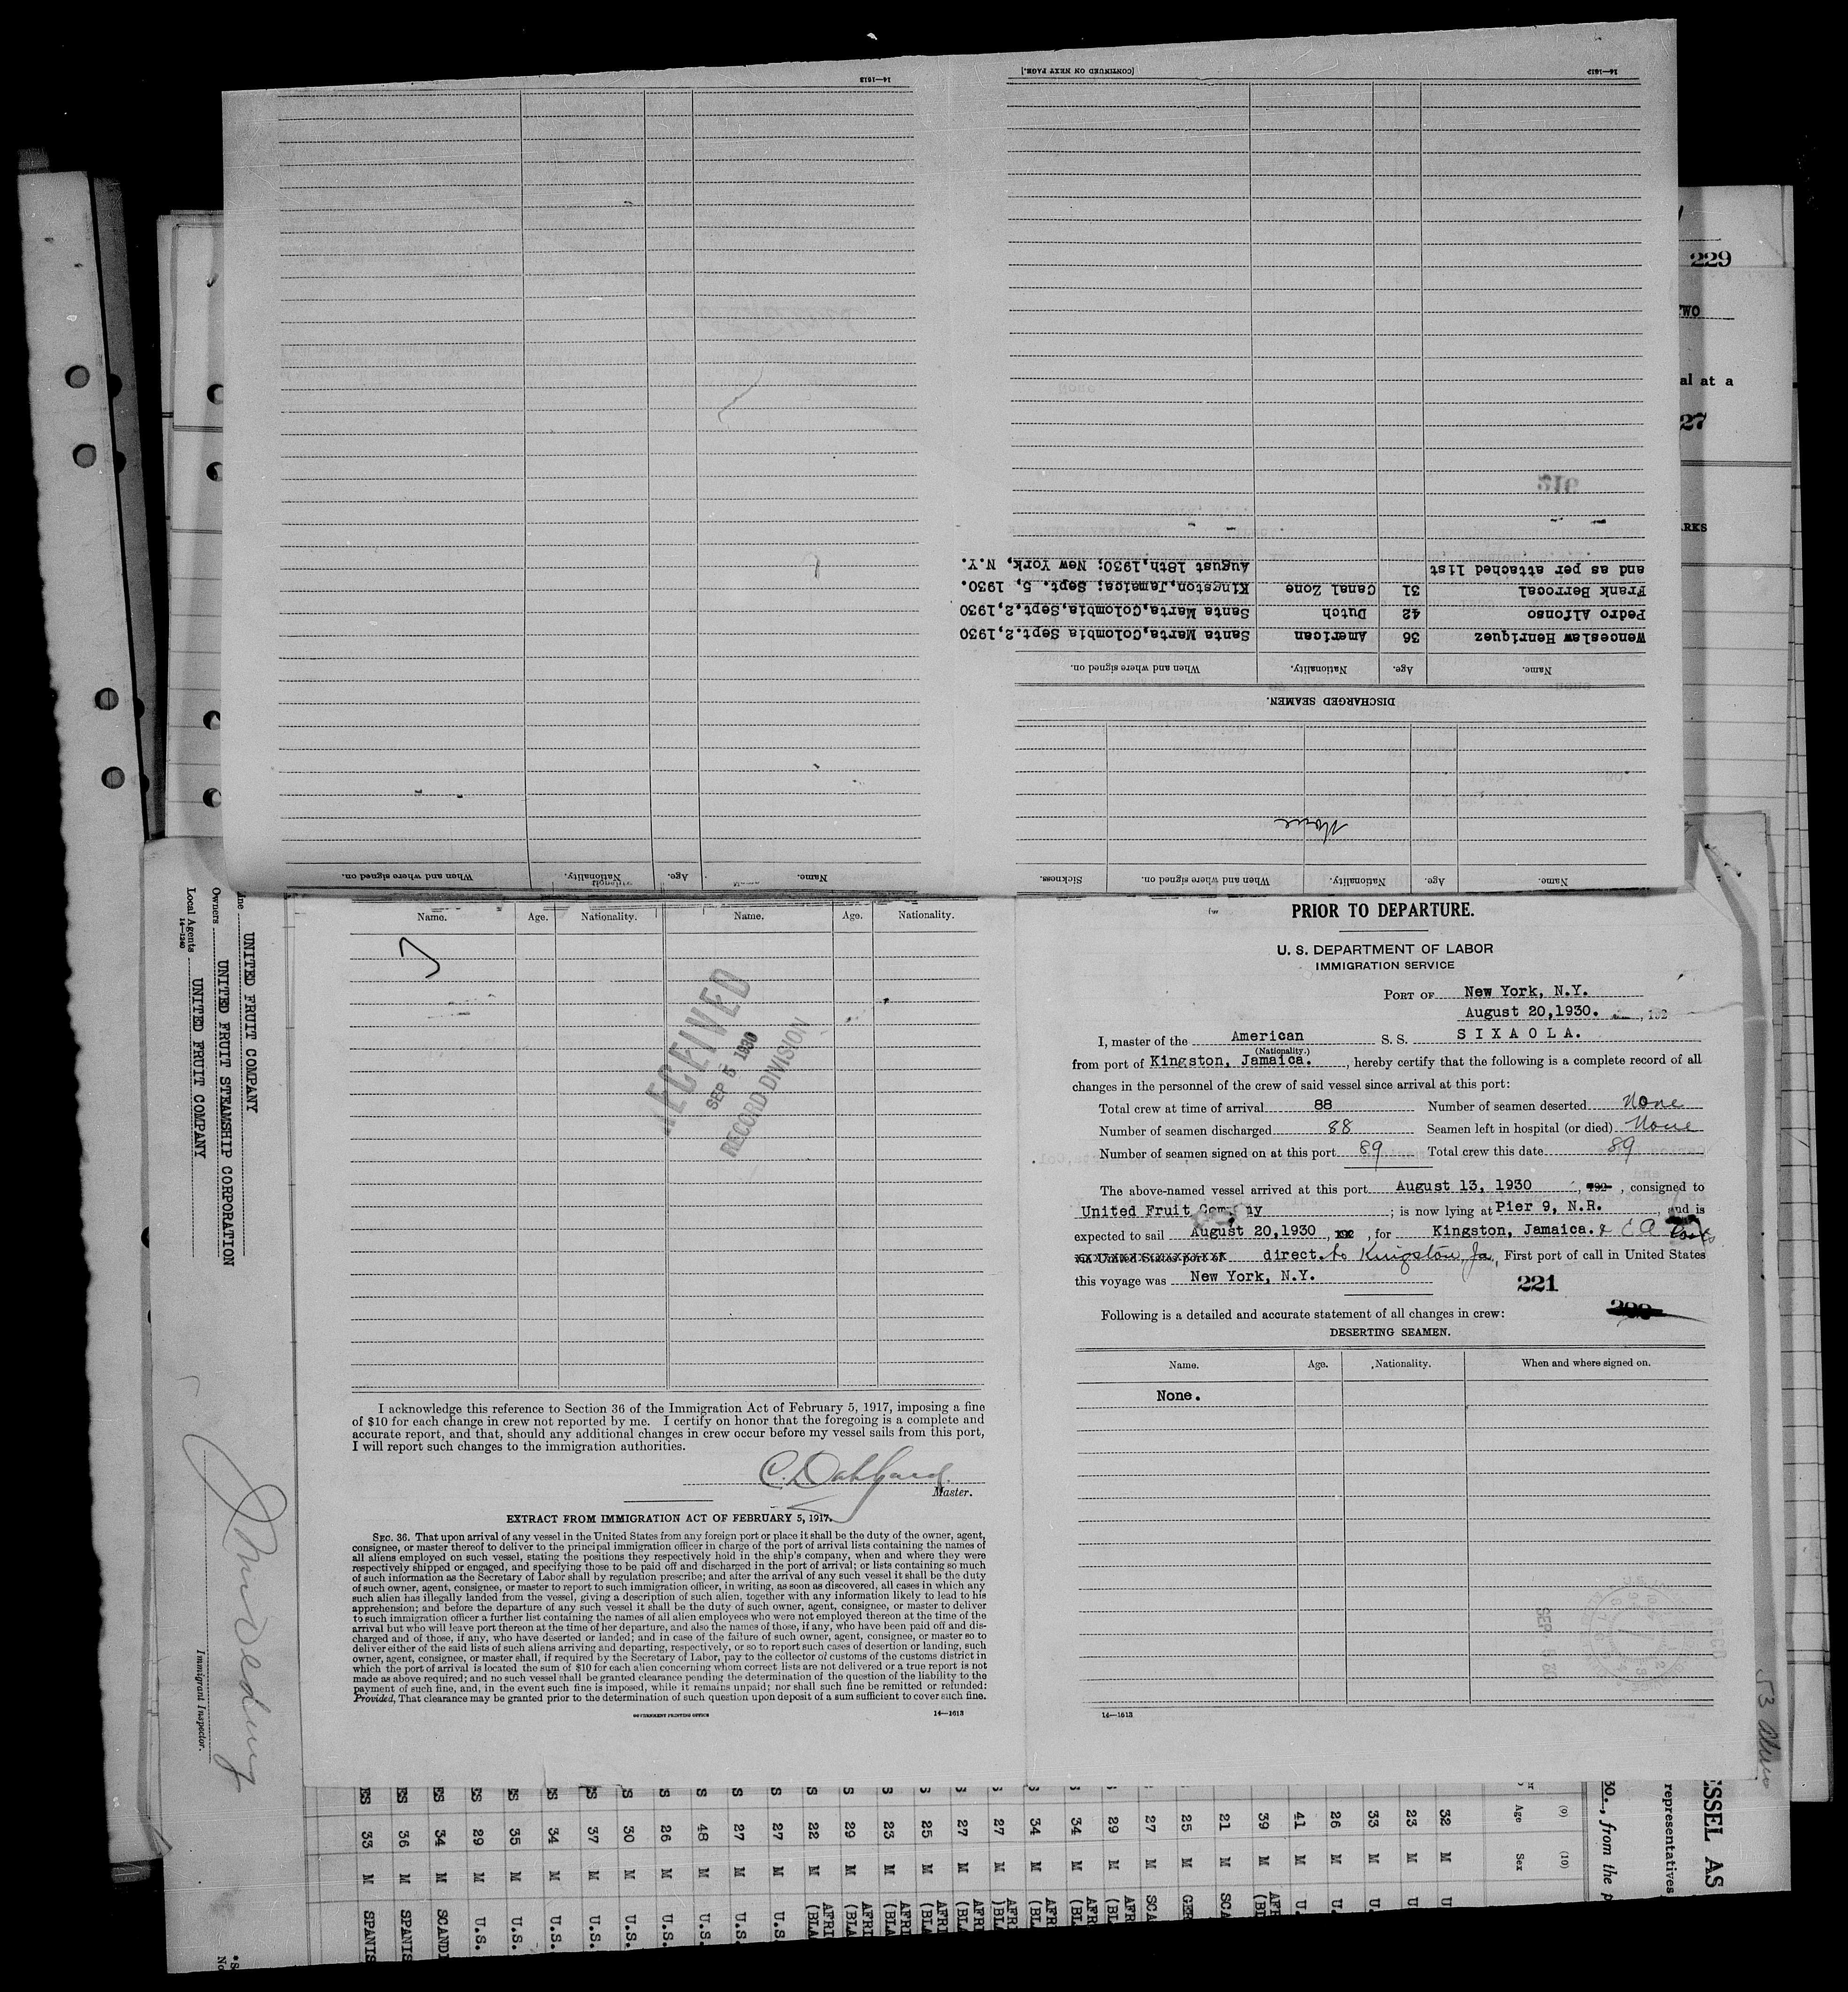 14—1613
[CONTINUED ON NEXT PAGE.]
14—1613
and as per attached list
August 18th,1930; New York, N.Y.
Frank Berrocal 31 Canal Zone Kingston,Jamaica; Sept. 5, 1930.
Pedro Alfonso 42 Dutch Santa Marta,Colombia,Sept.2,1930
Wenceslaw Henriquez 36 American Santa Marta,Colombia Sept.2,1930
Name. Age. Nationality. When and where signed on.
DISCHARGED SEAMEN.
None
Name. Age. Nationality. When and where signed on. Sickness.
Name. Age. Nationality. When and where signed on.
916
229
TWO
al at a
27
RKS
Name. Age. Nationality. Name. Age. Nationality.
RECEIVED
SEP 5 1930
RECORD DIVISION
I acknowledge this reference to Section 36 of the Immigration Act of February 5, 1917, imposing a fine
of $10 for each change in crew not reported by me. I certify on honor that the foregoing is a complete and
accurate report, and that, should any additional changes in crew occur before my vessel sails from this port,
I will report such changes to the immigration authorities.
C. Dahlgard
Master.
EXTRACT FROM IMMIGRATION ACT OF FEBRUARY 5, 1917.
SEC. 36. That upon arrival of any vessel in the United States from any foreign port or place it shall be the duty of the owner, agent,
consignee, or master thereof to deliver to the principal immigration officer in charge of the port of arrival lists containing the names of
all aliens employed on such vessel, stating the positions they respectively hold in the ship's company, when and where they were
respectively shipped or engaged, and specifying those to be paid off and discharged in the port of arrival; or lists containing so much
of such information as the Secretary of Labor shall by regulation prescribe; and after the arrival of any such vessel it shall be the duty
of such owner, agent, consignee, or master to report to such immigration officer, in writing, as soon as discovered, all cases in which any
such alien has illegally landed from the vessel, giving a description of such alien, together with any information likely to lead to his
apprehension; and before the departure of any such vessel it shall be the duty of such owner, agent, consignee, or master to deliver
to such immigration officer a further list containing the names of all alien employees who were not employed thereon at the time of the
arrival but who will leave port thereon at the time of her departure, and also the names of those, if any, who have been paid off and dis-
charged and of those, if any, who have deserted or landed; and in case of the failure of such owner, agent, consignee, or master so to
deliver either of the said lists of such aliens arriving and departing, respectively, or so to report such cases of desertion or landing, such
owner, agent, consignee, or master shall, if required by the Secretary of Labor, pay to the collector of customs of the customs district in
which the port of arrival is located the sum of $10 for each alien concerning whom correct lists are not delivered or a true report is not
made as above required; and no such vessel shall be granted clearance pending the determination of the question of the liability to the
payment of such fine, and, in the event such fine is imposed, while it remains unpaid; nor shall such fine be remitted or refunded:
Provided, That clearance may be granted prior to the determination of such question upon deposit of a sum sufficient to cover such fine.
GOVERNMENT PRINTING OFFICE 14—1613
PRIOR TO DEPARTURE.
U. S. DEPARTMENT OF LABOR
IMMIGRATION SERVICE
PORT OF New York, N.Y.
August 20,1930. , 192
I, master of the American S. S. S I X A O L A.
(Nationality.)
from port of Kingston, Jamaica. , hereby certify that the following is a complete record of all
changes in the personnel of the crew of said vessel since arrival at this port:
Total crew at time of arrival 88 Number of seamen deserted None
Number of seamen discharged 88 Seamen left in hospital (or died) None
Number of seamen signed on at this port 89 Total crew this date 89
The above-named vessel arrived at this port August 13, 1930 , 192 , consigned to
United Fruit Company ; is now lying at Pier 9, N.R. , and is
expected to sail August 20,1930 , 192 , for Kingston, Jamaica. & C A
via United States port of direct to Kingston, Ja, First port of call in United States
this voyage was New York, N.Y.
221
Following is a detailed and accurate statement of all changes in crew:
DESERTING SEAMEN.
Name. Age. Nationality. When and where signed on.
None.
14—1613
ine UNITED FRUIT COMPANY
Owners UNITED FRUIT STEAMSHIP CORPORATION
Local Agents UNITED FRUIT COMPANY
14—1240
Immigrant Inspector.
ES 33 M SPANIS
ES 36 M SPANIS
ES 34 M SCANDI
ES 29 M U.S.
ES 35 M U.S.
ES 34 M U.S.
ES 37 M U.S.
S 30 M U.S.
S 26 M U.S.
S 48 M U.S.
S 27 M U.S.
S 27 M U.S.
S 22 M AFRI (BLA
S 29 M AFRI (BLA
S 23 M AFRI (BLA
S 25 M AFRI (BLA
27 M AFRI (BLA
27 M AFRI (BLA
34 M AFRI (BLA
34 M AFR (BLA
29 M AFR (BLA
27 M SCA
25 M GER
21 M SCA
39 M AFR (BL
41 M U.
26 M U.
33 M U.
23 M U
32 M U
(9) Age
(10) Sex
30., from the p
representatives
SSEL AS
53